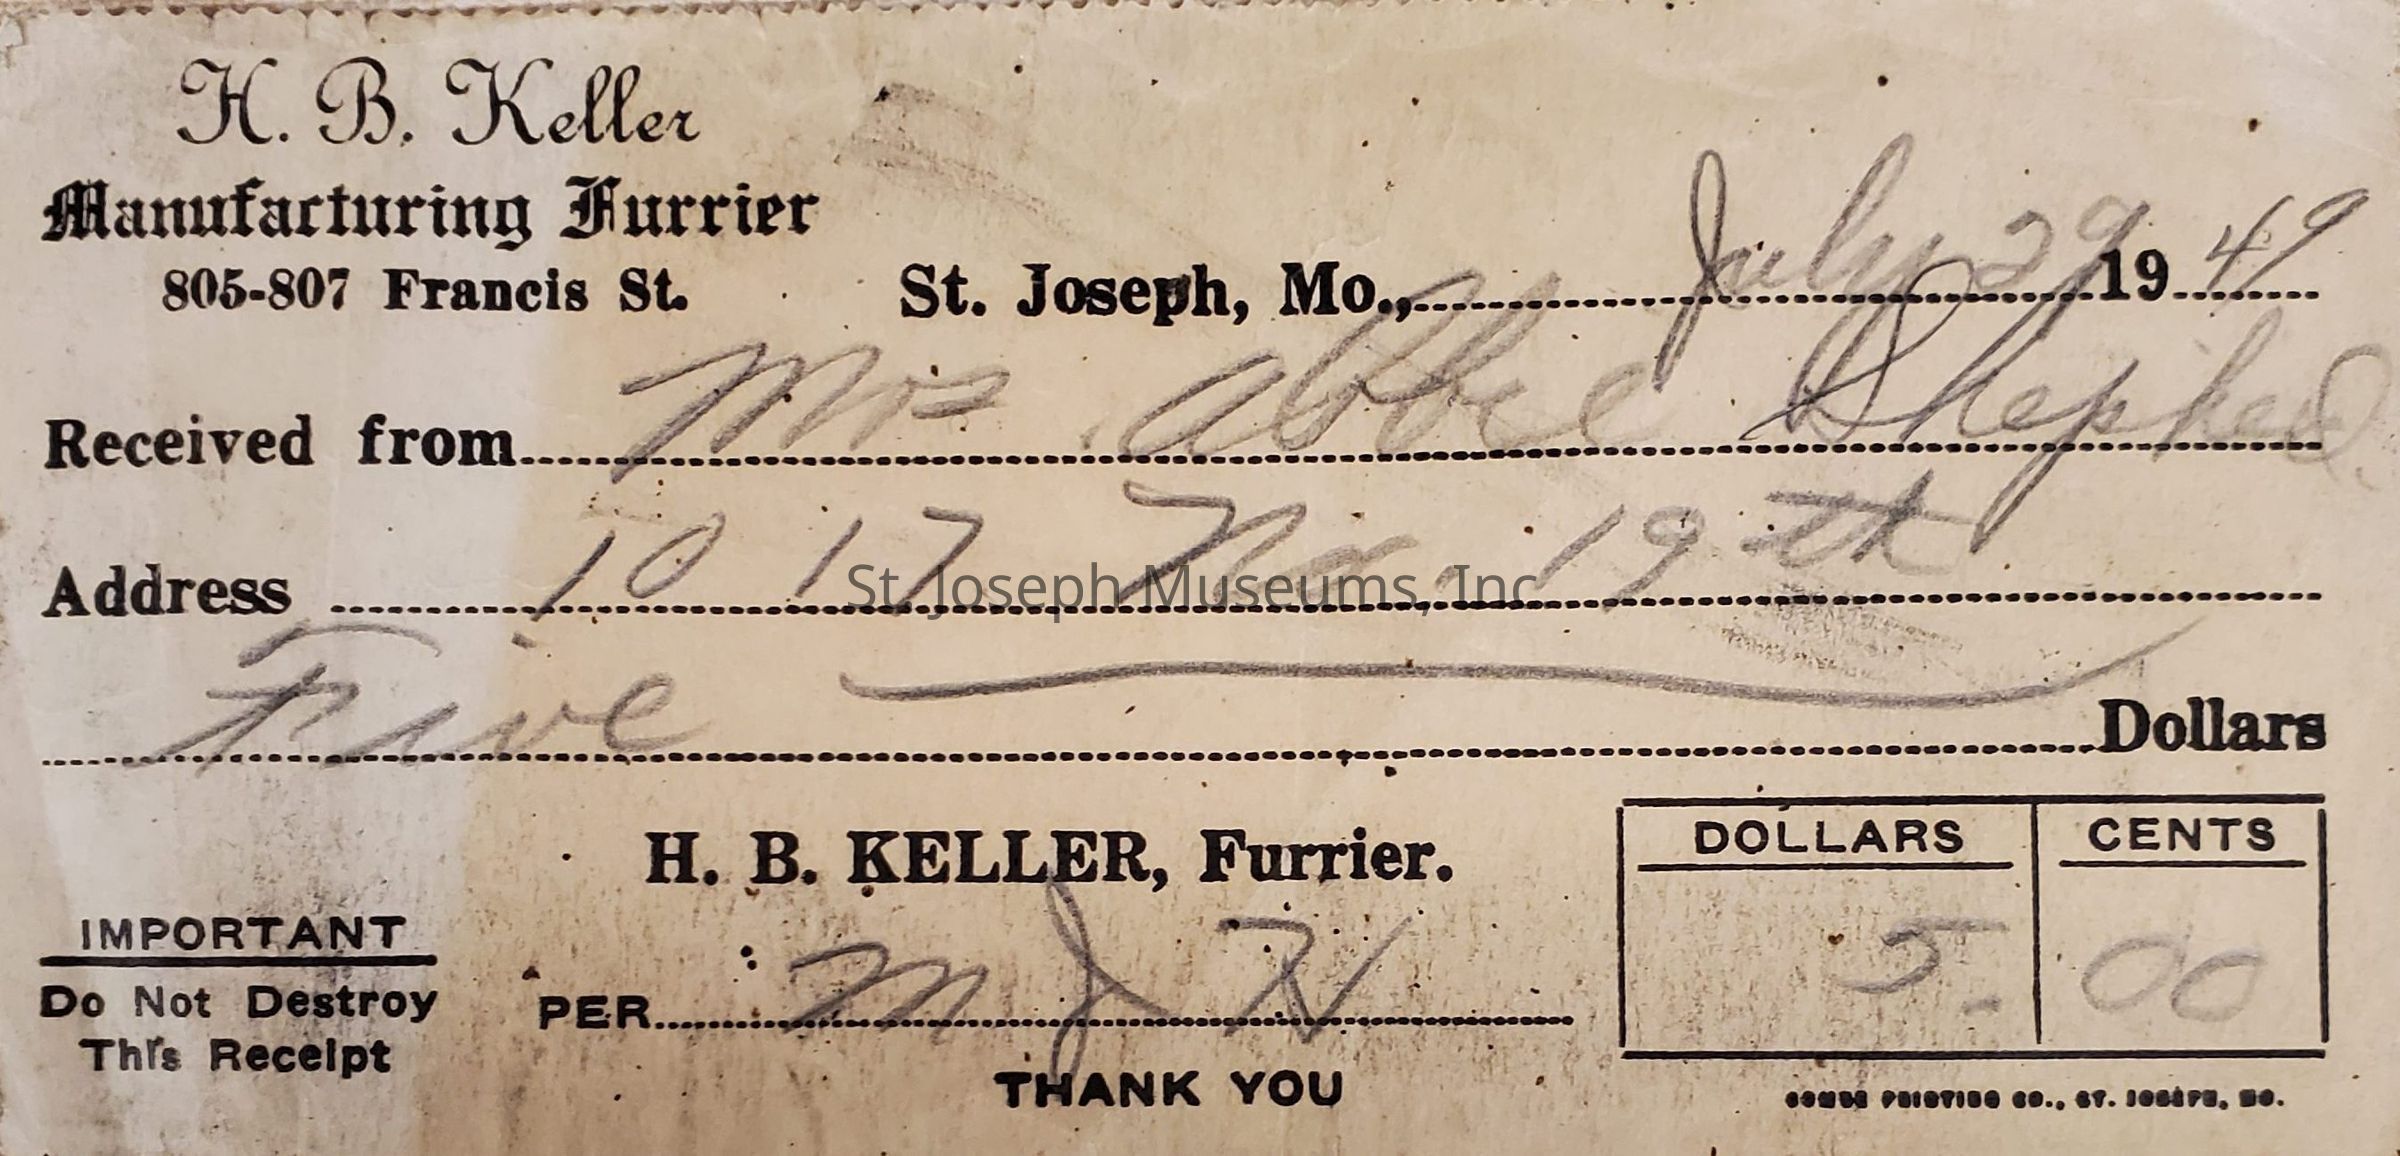 H. B. Keller
Manufacturing Furrier
805-807 Francis St.
St. Joseph, Mo., July 29 19 49
Received from Mrs Abbie Shepherd
Address 10 17 No. 19th
St Joseph Museums, Inc
Five Dollars
H. B. KELLER, Furrier.
DOLLARS CENTS
5. 00
IMPORTANT
Do Not Destroy
This Receipt
PER M J N
THANK YOU
COMBE PRINTING CO., ST. JOSEPH, MO.